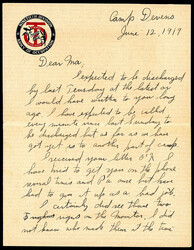 Camp Devens
June, 12, 1919
Dear Ma,
I expected to be discharged
by last Tuesday at the latest or
I would have written to you long
ago. I have expected to be called
every minute since last Sunday to
be discharged but as far as we have
got yet is to another part of camp.
I received your letter O.K. I
have tried to get you on the phone
several times and Pa once but have
had to give it up as a bad job.
I certainly did see those two
signs on the Monitor, I did
not know who made them at the time